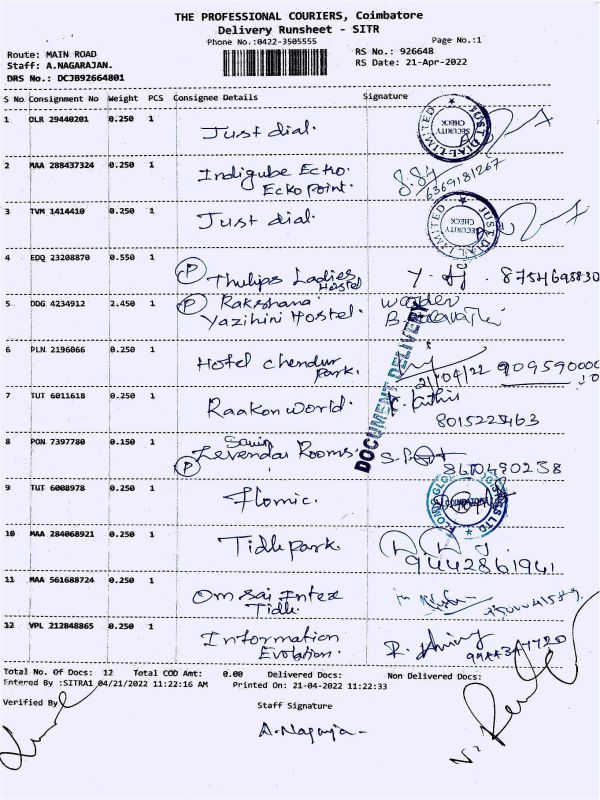 THE PROFESSIONAL COURIERS, Coimbatore
Delivery Runsheet - SITR
Phone No.:0422-3505555 Page No.:1
Route: MAIN ROAD RS No.: 926648
Staff: A.NAGARAJAN. RS Date: 21-Apr-2022
DRS No.: DCJB92664801
S No Consignment No Weight PCS Consignee Details Signature
1 OLR 29440201 0.250 1 Just dial. JUST DIAL LIMITED SECURITY CHECK
2 MAA 288437324 0.250 1 Indiqube Echo
Ecko point. 6369181267
3 TVM 1414410 0.250 1 Just dial. JUST DIAL LIMITED SECURITY CHECK
4 EDQ 23208870 0.550 1 P Thulips Ladies
Hostel 8754698830
5 DDG 4234912 2.450 1 P Rakshana
Yazihini Hostel.
6 PLN 2196066 0.250 1 Hotel chendur
Park. 21/04/22
DOCUMENT DELIVERY
7 TUT 6011618 0.250 1 Raakon world. 8015225463
8 PON 7397780 0.150 1 P
Levendar Rooms. 8610490258
9 TUT 6008978 0.250 1 Flomic.
10 MAA 284068921 0.250 1 Tidle park. 9442861941
11 MAA 561688724 0.250 1 Om sai Intex
Tidle.
12 VPL 212848865 0.250 1 Information
Evolution.
Total No. Of Docs: 12 Total COD Amt: 0.00 Delivered Docs: Non Delivered Docs:
Entered By :SITRA1 04/21/2022 11:22:16 AM Printed On: 21-04-2022 11:22:33
Verified By Staff Signature